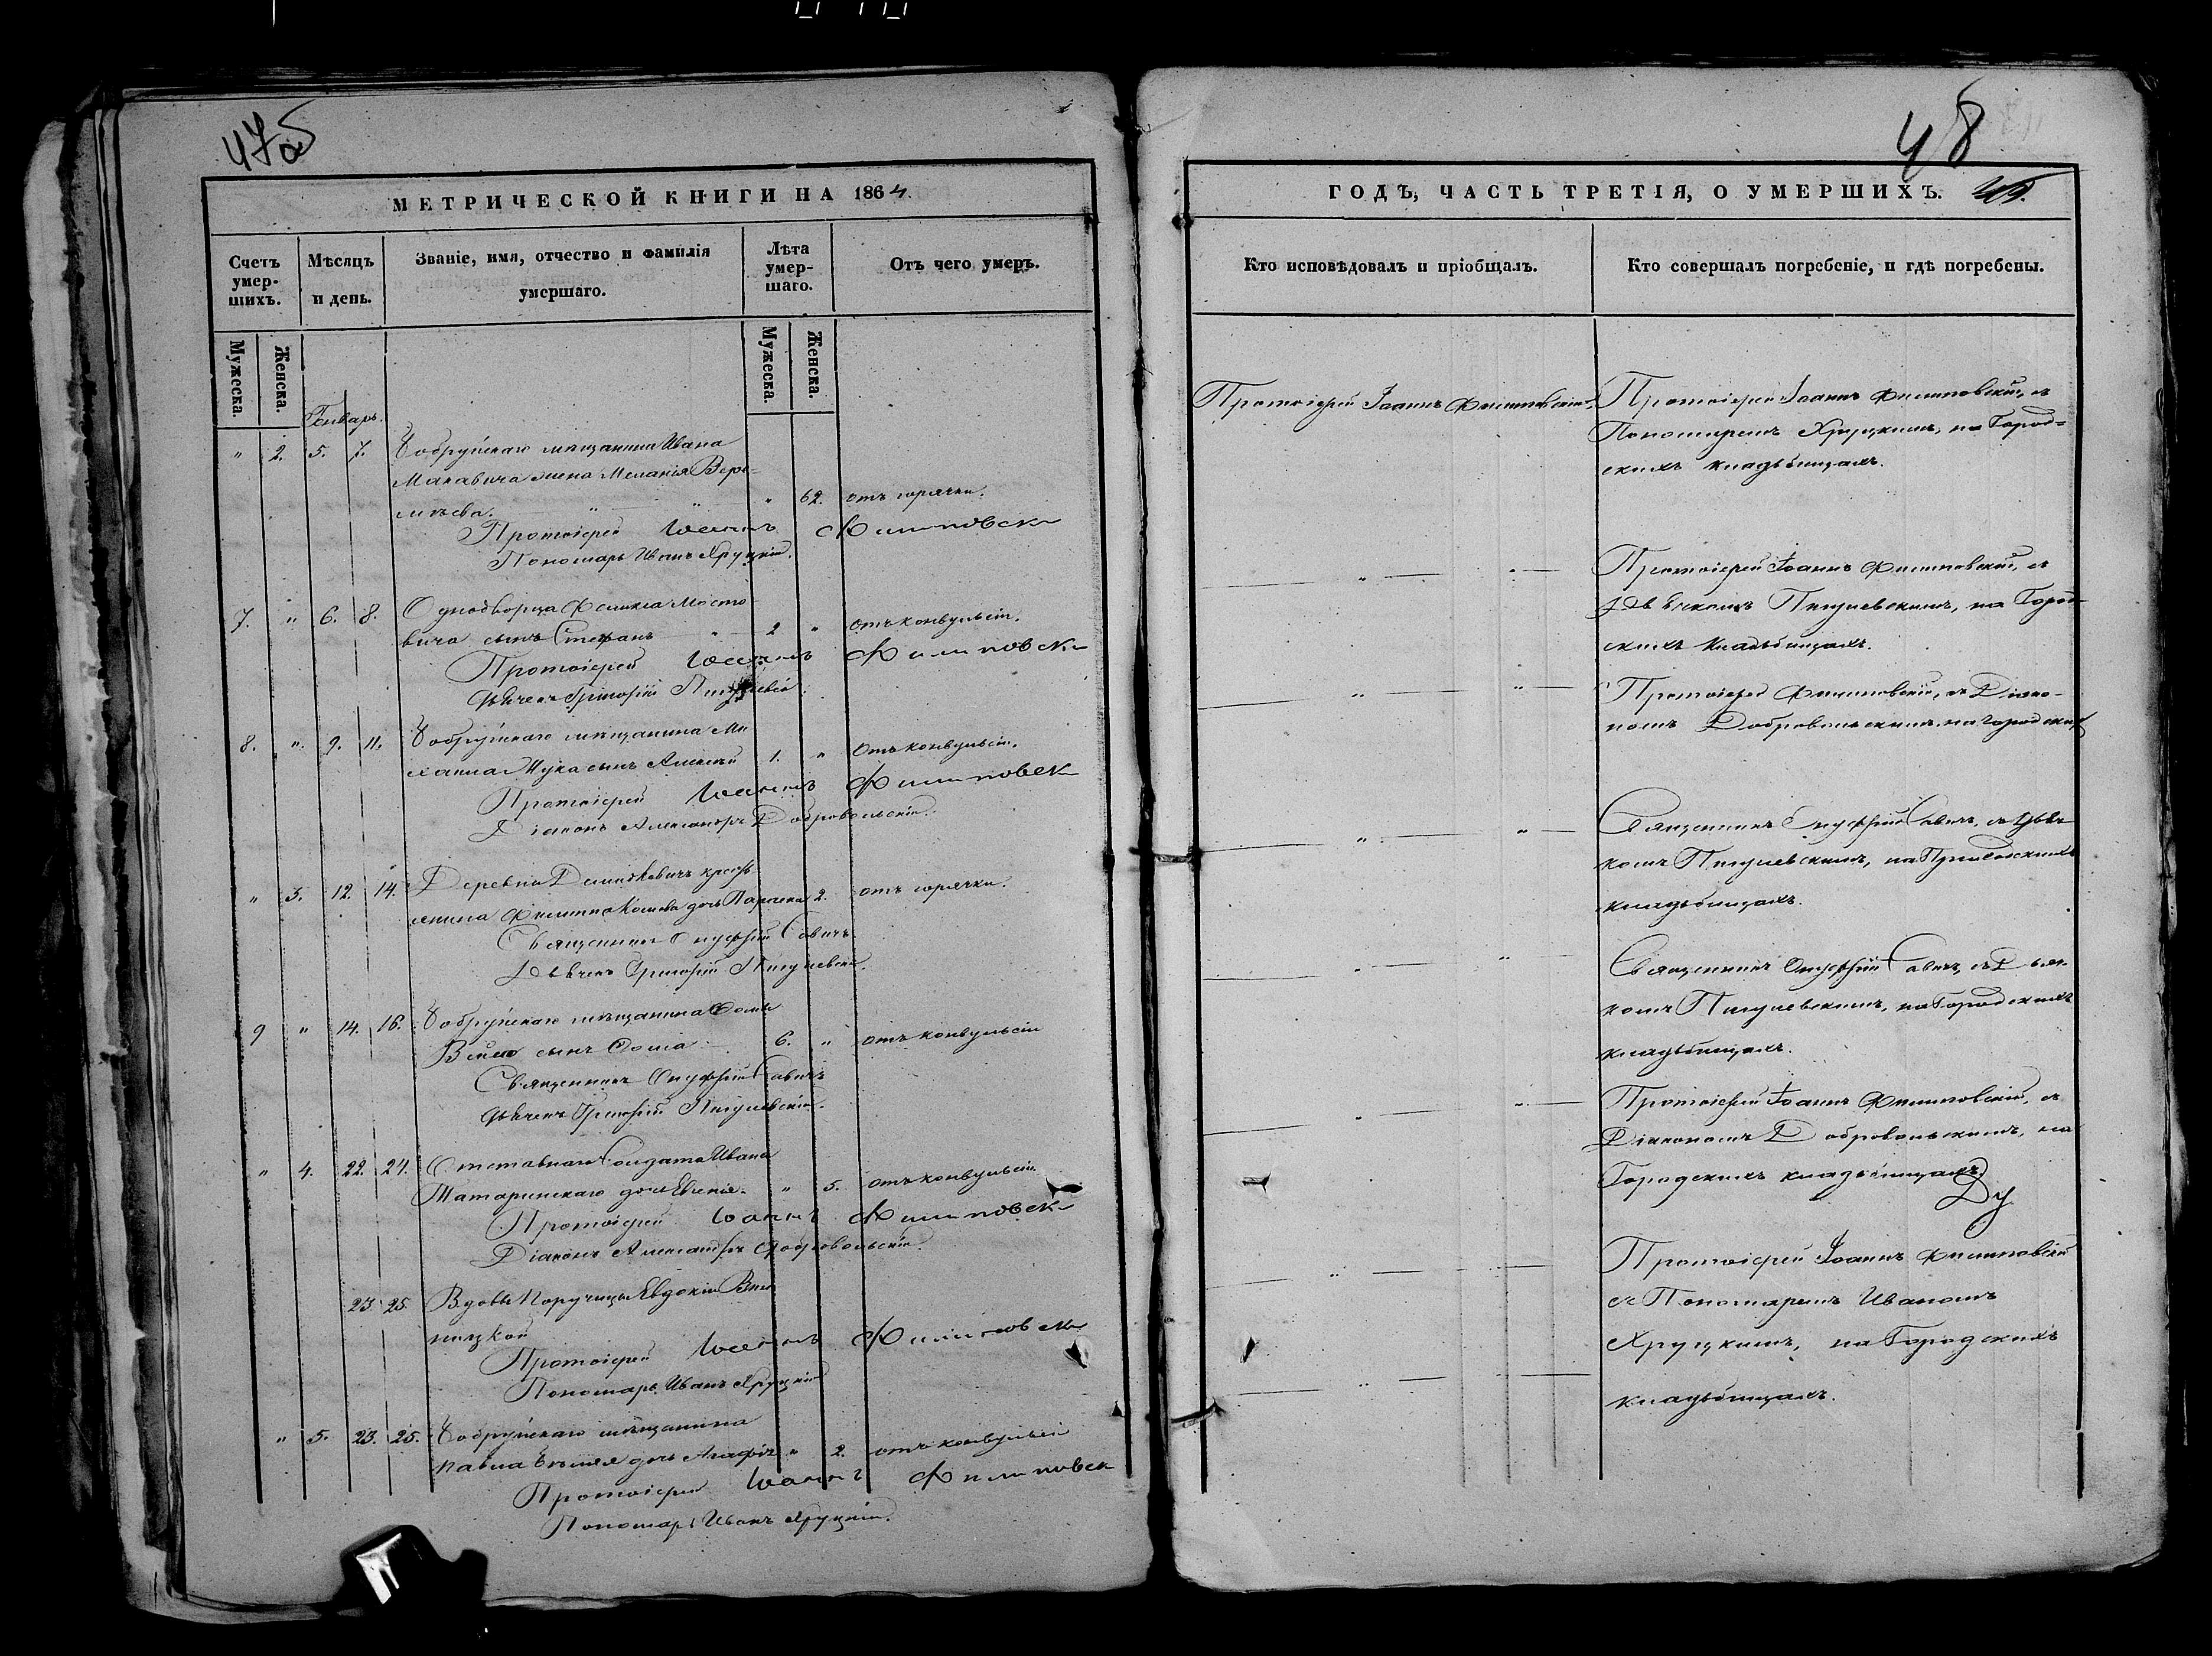 47об
МЕТРИЧЕСКОЙ КНИГИ НА 1864.
Счетъ умер-шихъ.
Мѣсяцъ и день.
Званіе, имя, отчество и фамилія умершаго.
Лѣта умер-шаго.
Отъ чего умеръ.
Мужеска.
Женска.
Мужеска.
Женска.
Генварь.
" 2. 5. 7. Бобруйскаго мѣщанина Ивана
Макавича жена Меланія
" 62. отъ горячки.
Протоіерей Іоаннъ Филиповскі
Пономарь Иванъ Хруцкій.
7. " 6. 8. Однодворца Феликса Мосто-
вича сынъ Стефанъ 2 " отъ конвульсіи.
Протоіерей Іоаннъ Филиповскі
Дьячекъ Григорій Пигулевскій
8. " 9. 11. Бобруйскаго мѣщанина Ми
хаила Жука сынъ Алексѣй 1. " отъ конвульсіи.
Протоіерей Іоаннъ Филиповск
Діаконъ Александръ Добровольскій.
" 3. 12. 14. Деревни крестъ
янина Филиппа дочь 2. отъ горячки.
Священникъ Онуфрій Савичъ
Дьячекъ Григорій Пигулевскій.
9 " 14. 16. Бобруйскаго мѣщанина Фомы
сынъ Фома 6. " отъ конвульсіи
Священникъ Онуфрій Савичъ
Дьячекъ Григорій Пигулевскій.
" 4. 22. 24. Отставнаго Солдата Ивана
Татаринскаго дочь Евгенія. " 5. отъ конвульсіи
Протоіерей Іоаннъ Филиповскі
Діаконъ Александръ Добровольскій.
23. 25. Вдовы Поручицы Евдокіи
ницкой
Протоіерей Іоаннъ Филиповскі
Пономарь Иванъ Хруцкій
" 5. 23. 25. Бобруйскаго мѣщанина
Павла дочь Агафія " 2. отъ конвульсіи
Протоіерей Іоаннъ Филиповск
Пономарь Иванъ Хруцкій.
48
ГОДЪ, ЧАСТЬ ТРЕТІЯ, О УМЕРШИХЪ.
Кто исповѣдовалъ и пріобщалъ.
Кто совершалъ погребеніе, и гдѣ погребены.
Протоіерей Іоаннъ Филиповскій.
Протоіерей Іоаннъ Филиповскій, съ
Пономаремъ Хруцкимъ, на Город=
скихъ кладбищахъ.
Протоіерей Іоаннъ Филиповскій, съ
Дьячкомъ Пигулевскимъ, на Город-
скихъ кладбищахъ.
Протоіерей Филиповскій, съ Діако-
номъ Добровольскимъ, на городских
Священникъ Онуфрій Савичъ, съ Дьяч
комъ Пигулевскимъ, на
кладбищахъ.
Священникъ Онуфрій Савичъ, съ Дьяч
комъ Пигулевскимъ, на Городскихъ
кладбищахъ.
Протоіерей Іоаннъ Филиповскій, съ
Діакономъ Добровольскимъ, на
Городскихъ кладбищахъ.
Протоіерей Іоаннъ Филиповскій
съ Пономаремъ Иваномъ
Хруцкимъ, на Городскихъ
кладбищахъ.